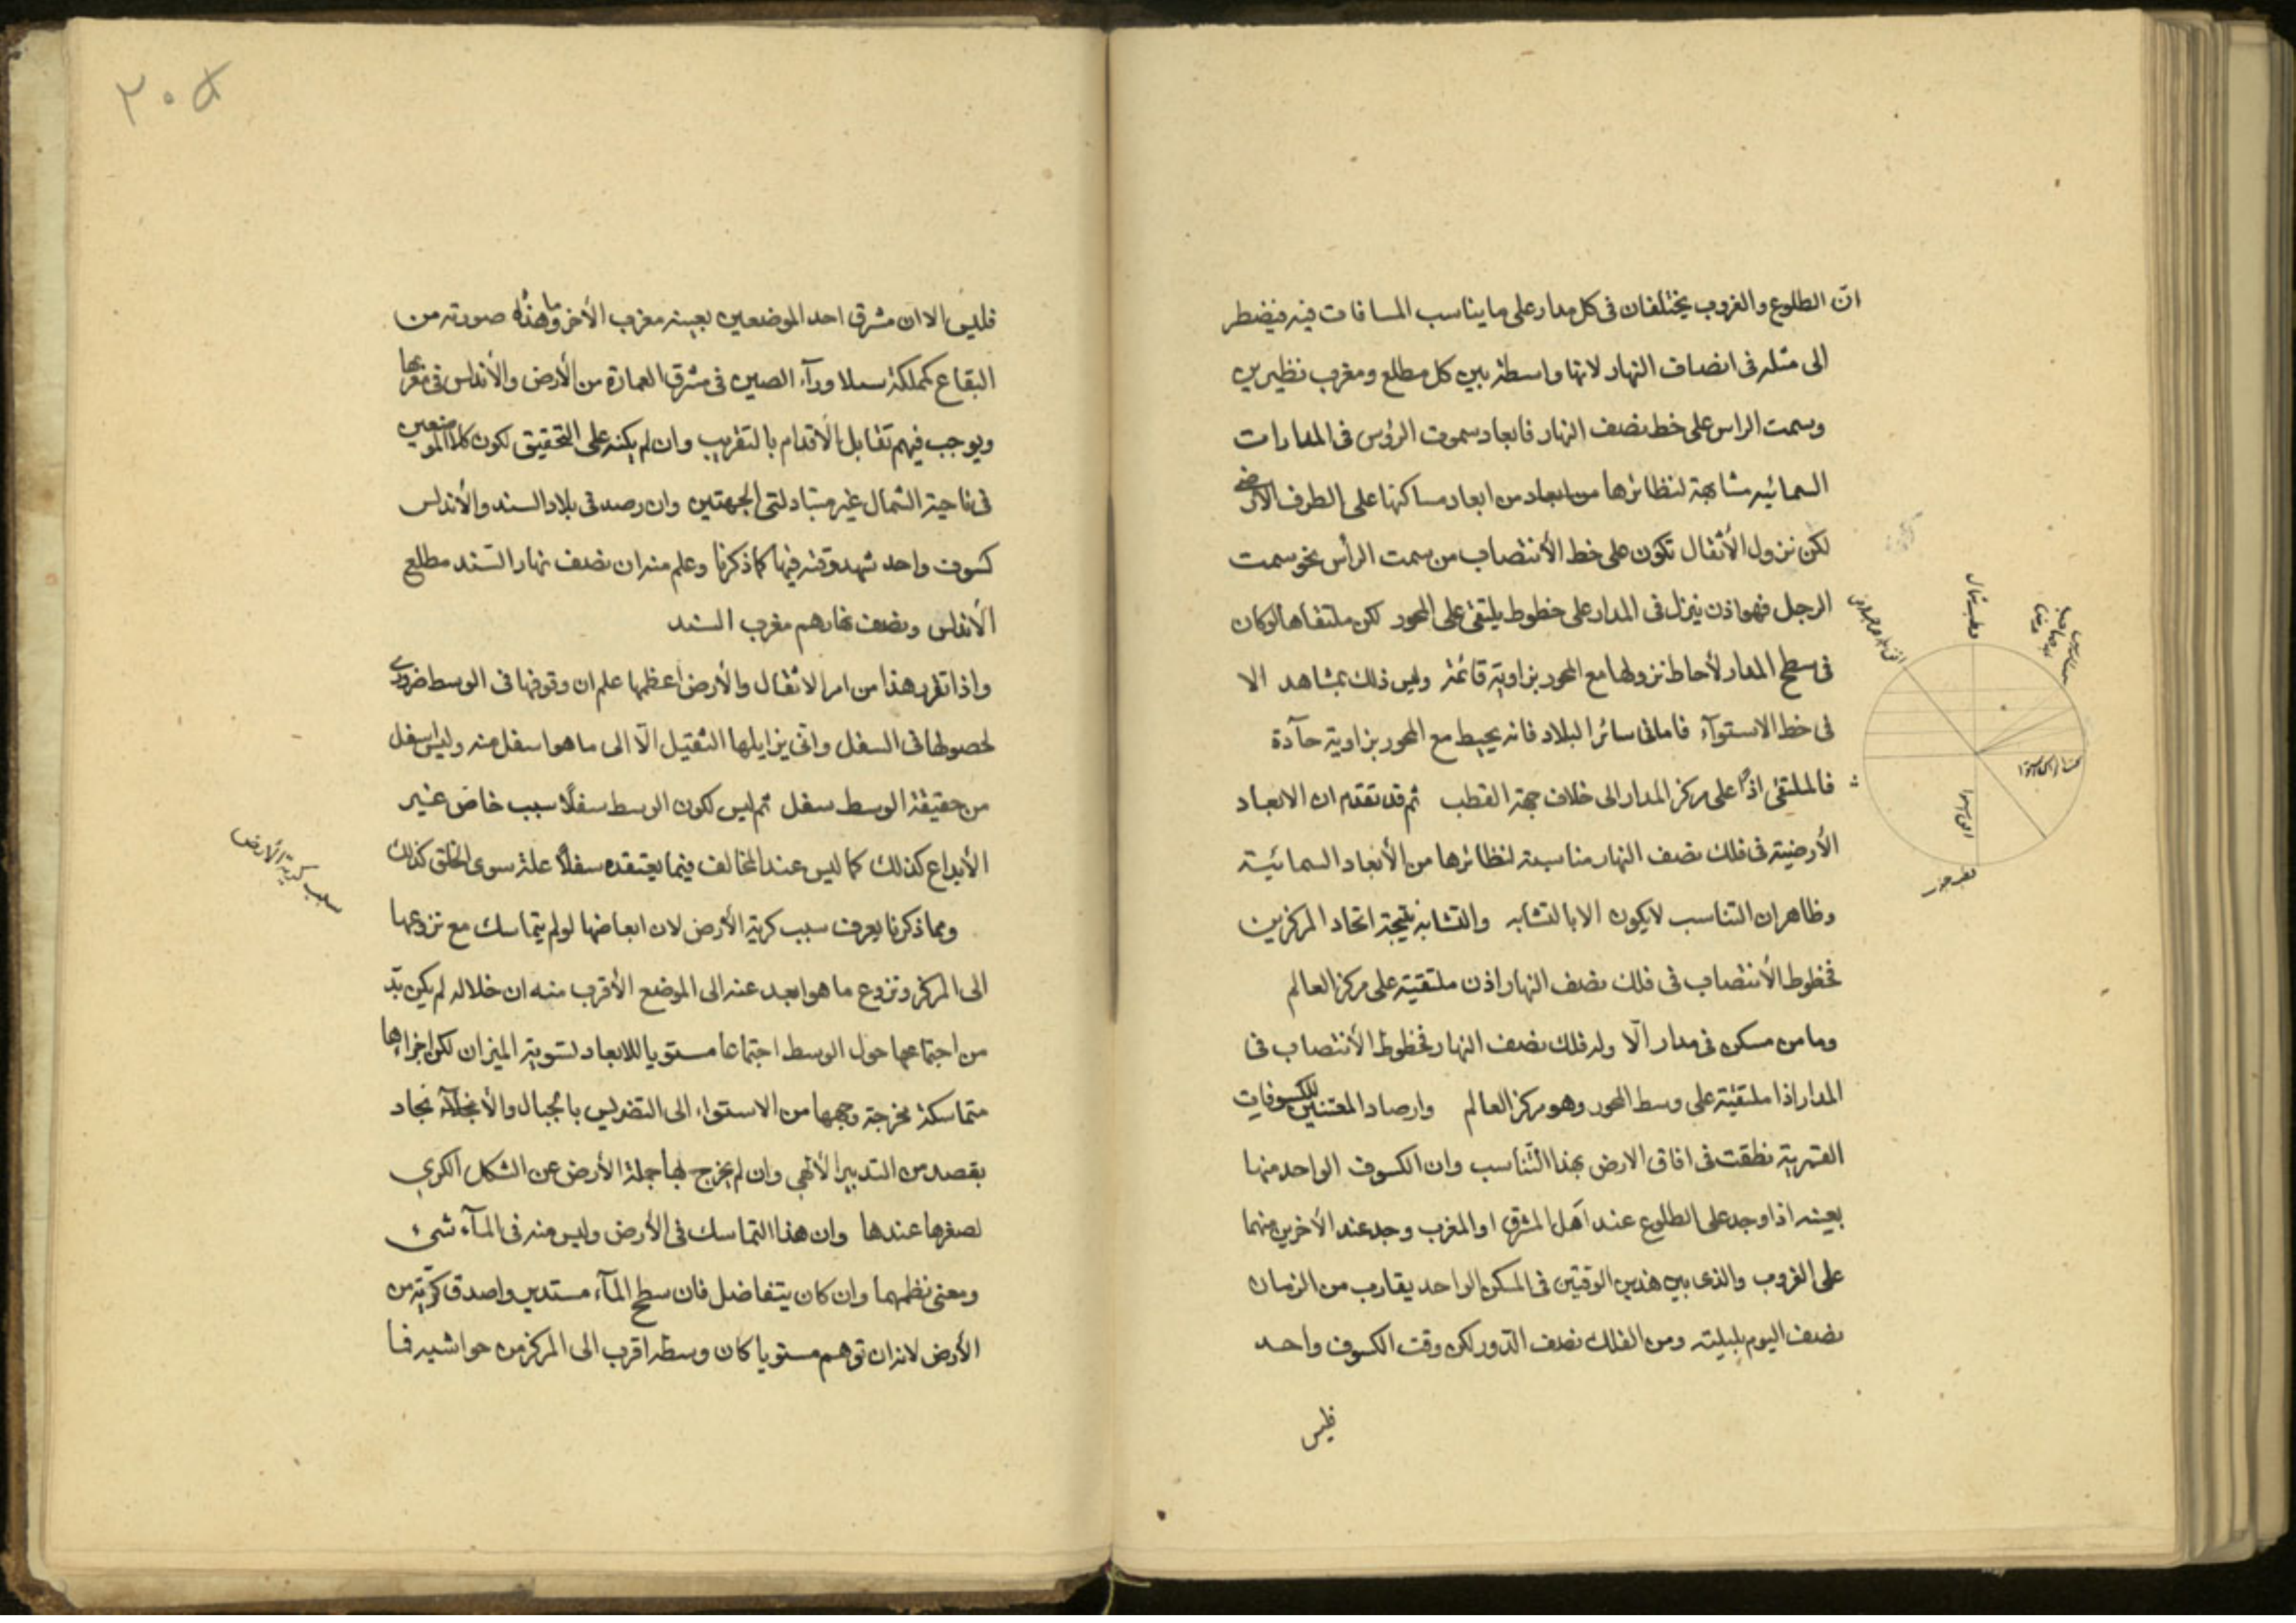 انّ الطلوع والغروب يختلفان فى كل مدار على ما يناسب المسافات فيه فيضطر
الى مثله فى انصاف النهار لانها واسطة بين كل مطلع ومغرب نظيرين
وسمت الراس على خط نصف النهار فابعاد سموت الرؤس فى المدارات
السمائيه مشابهة لنظائرها من ابعاد من ابعاد مساكنها على الطرف الارضى
لكن نزول الأثقال تكون على خط الأنتصاب من سمت الرأس نحو سمت
الرجل فهو اذن ينزل فى المدار على خطوط يلتقى على المحور لكن ملتقاها لو كان
فى سطح المدار لأحاط نزولها مع المحور بزاوية قائمة وليس ذلك بمشاهد الا
فى خط الاستوآء فاما فى سائر البلاد فانه يحيط مع المحور بزاوية حآدة
فالملتقى اذا على مركز المدار الى خلاف جهة القطب ثم قد تقدم ان الابعاد
الأرضية فى فلك نصف النهار مناسبة لنظائرها من الأبعاد السمائية
وظاهر ان التناسب لايكون الا بالتشابه والتشابه نتيجة اتحاد المركزين
فخطوط الأنتصاب فى فلك نصف النهار اذن ملتقية على مركز العالم
وما من مسكن فى مدار الّا وله فلك نصف النهار فخطوط الأنتصاب فى
المدار اذا ملتقية على وسط المحور وهو مركز العالم وارصاد المعتنين للكسوفات
القمرية نطقت فى افاق الارض بهذا التناسب وان الكسوف الواحد منها
بعينه اذا وجد على الطلوع عند اهل المشرق او المغرب وجد عند الأخرين منهما
على الغروب والذى بين هذين الوقتين فى المسكن الواحد يقارب من الزمان
نصف اليوم بليلته ومن الفلك نصف الدّور لكن وقت الكسوف واحد
فليس
قطب شمال
٢٠٥
فليس الا ان مشرق احد الموضعين بعينه مغرب الأخر وما هذه صورته من
البقاع كمملكة سيلا ورآء الصين فى مشرق العمارة من الأرض والأندلس فى مغربها
ويوجب فيهم تقابل الأقدام بالتقريب وان لم يكنه على التحقيق لكون كلا الموضعين
فى ناحية الشمال غير متبادلتى الجهتين وان رصد فى بلاد السند والأندلس
كسوف واحد شهد وقته فيها كما ذكرنا وعلم منه ان نصف نهار السّند مطلع
الأندلس ونصف نهارهم مغرب السند
واذا تقرر هذا من امر الاثقال والأرض اعظمها علم ان وقوفها فى الوسط ضرورى
لحصولها فى السفل وانى يزايلها الثقيل الّا الى ما هو اسفل منه وليس اسفل
من حقيقة الوسط سفل ثم ليس لكون الوسط سفلًا سبب خاص غير
الأبداع كذلك كما ليس عند المخالف فيما يعتقده سفلاً علة سوى الخلق كذلك
ومما ذكرنا يعرف سبب كرية الأرض لان ابعاضها لو لم يتماسك مع نزوعها
الى المركز ونزوع ما هو ابعد عنه الى الموضع الأقرب منه ان خلا له لم يكن بدّ
من اجتماعها حول الوسط اجتماعا مستويا للابعاد لتسوية الميزان لكن اجزاءها
متماسكة مخرجة وجهها من الاستواء الى التضريس بالجبال والأنجاد
بقصد من التدبير الألهى وان لم يخرج بها جملة الأرض عن الشكل الكرى
لصغرها عندها وان هذا التماسك فى الأرض وليس منه فى المآء شىء
ومعنى نظمهما وان كان يتفاضل فان سطح المآء مستدير واصدق كرّية من
الأرض لانه ان توهم مستويا كان وسطه اقرب الى المركز من حواشيه فما
سبب كرية الأرض